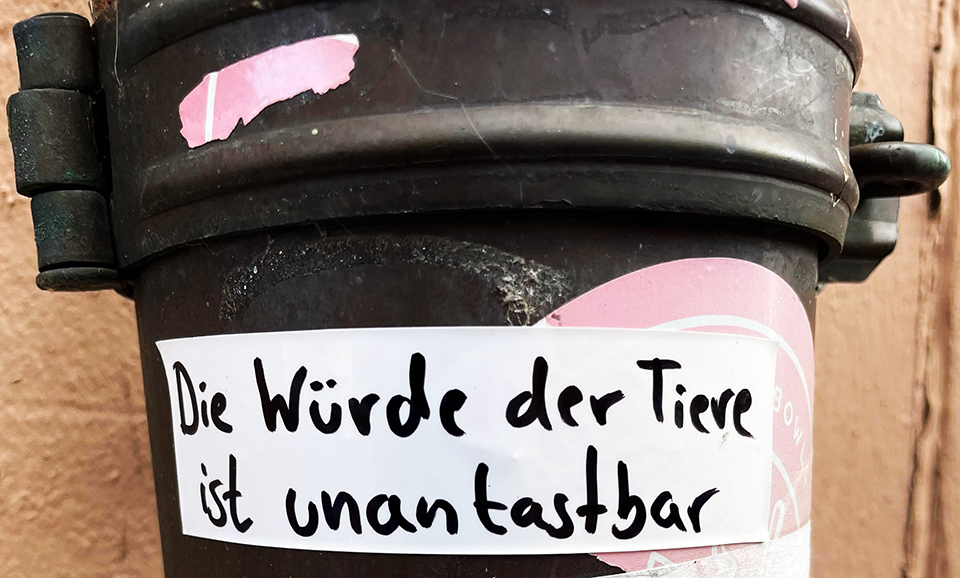 Die Würde der Tiere
ist unantastbar
BOWL